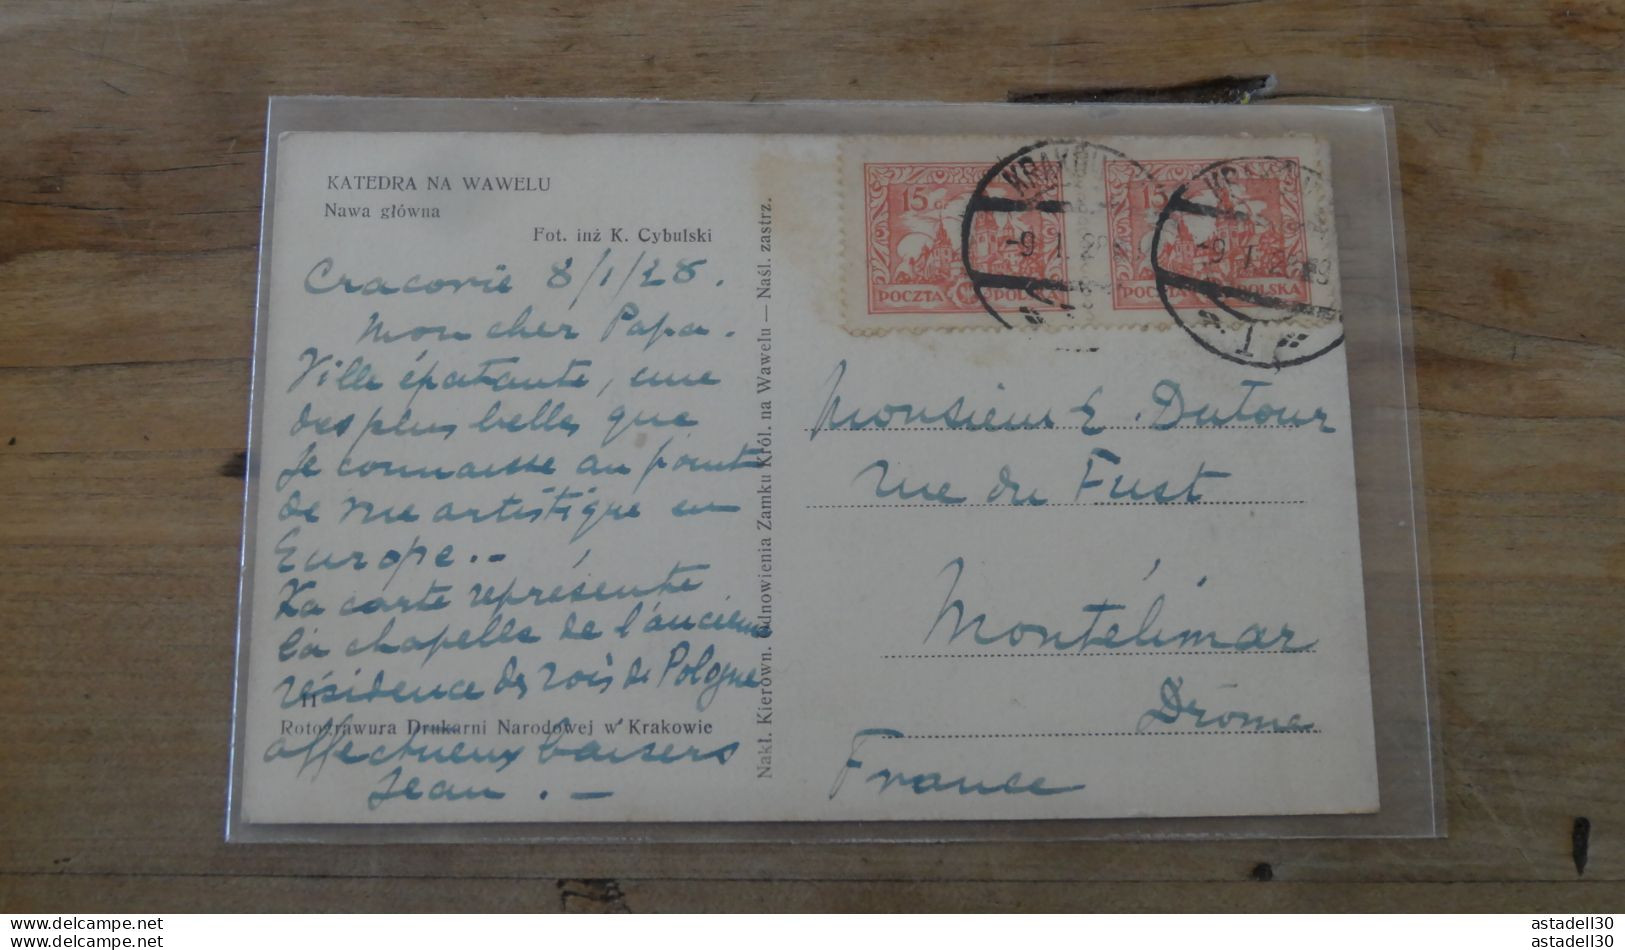 KATEDRA NA WAWELU
Nawa główna
Fot. inż K. Cybulski
Cracovie 8/1/28.
Mon cher Papa.
Ville épatante, une
des plus belles que
je connaisse au point
de vue artistique en
Europe..-
La carte représente
la chapelle de l'ancienne
résidence des rois de Pologne
11
Rotograwura Drukarni Narodowej w Krakowie
affectueux baisers
Jean.-
Nakł. Kierown. Odnowienia Zamku Król. na Wawelu — Naśl. zastrz.
15 Gr
POCZTA POLSKA
15
POCZTA POLSKA
KRAKÓW
-9.I.28
1
KRAKÓW
-9.I.28
1
Monsieur E. Dutour
rue du Fust
Montélimar
Drôme
France
astadell30
astadell30
astadell30
astadell30